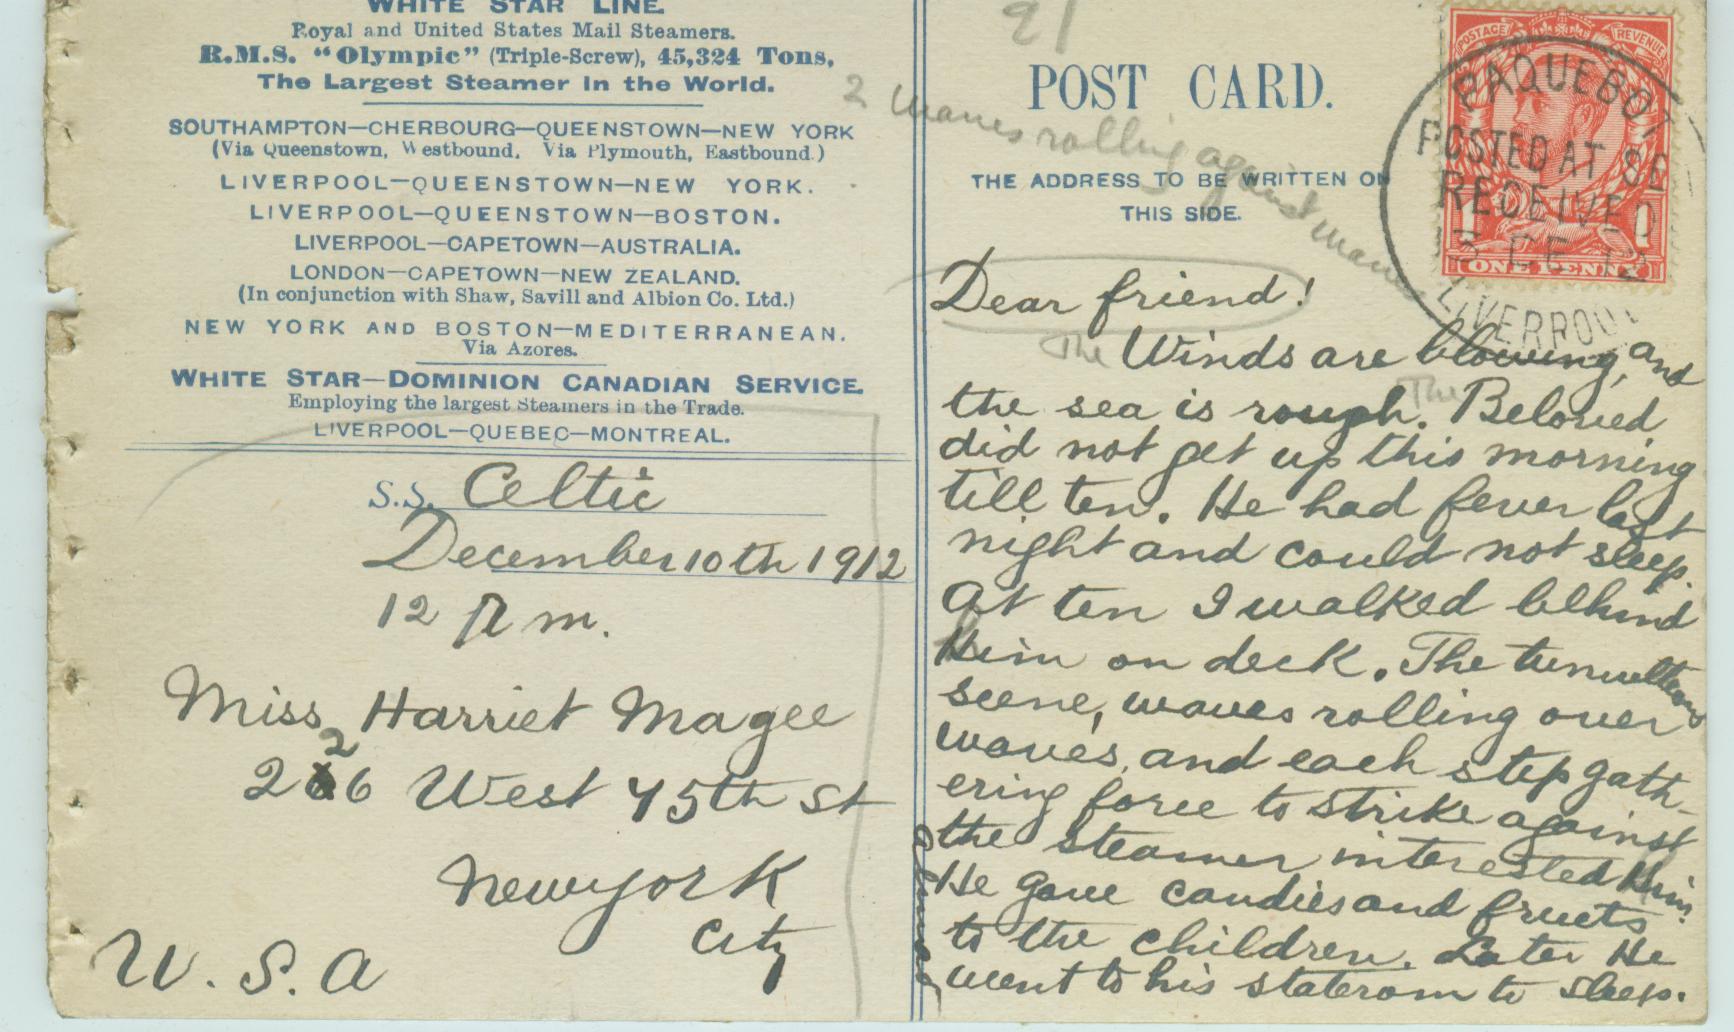 WHITE STAR LINE.
Royal and United States Mail Steamers.
R.M.S. "Olympic" (Triple-Screw), 45,324 Tons,
The Largest Steamer in the World.
SOUTHAMPTON—CHERBOURG—QUEENSTOWN—NEW YORK
(Via Queenstown, Westbound, Via Plymouth, Eastbound.)
LIVERPOOL—QUEENSTOWN—NEW YORK.
LIVERPOOL—QUEENSTOWN—BOSTON.
LIVERPOOL—CAPETOWN—AUSTRALIA.
LONDON—CAPETOWN—NEW ZEALAND.
(In conjunction with Shaw, Savill and Albion Co. Ltd.)
NEW YORK AND BOSTON—MEDITERRANEAN.
Via Azores.
WHITE STAR—DOMINION CANADIAN SERVICE.
Employing the largest Steamers in the Trade.
LIVERPOOL—QUEBEC—MONTREAL.
S.S. Celtic
December 10th 1912
12 P.m.
Miss Harriet Magee
2
266 West 45th St
New York
City
U.S.A
91
POST CARD.
2 waves rolling against waves
THE ADDRESS TO BE WRITTEN ON
THIS SIDE.
POSTAGE REVENUE
ONE PENNY
1
PAQUEBOT
POSTED AT SE
RECEIVED
13 DE 12
LIVERPOOL
Dear friend!
The Winds are blowing, and
the sea is rough. The Beloved
did not get up this morning
till ten. He had fever last
night and could not sleep.
At ten I walked behind
Him on deck. The tumultous
scene, waves rolling over
waves, and each step gath-
ering force to strike against
the steamer interested Him.
He gave candies and fruits
to the children. Later He
went to his stateroom to sleep.